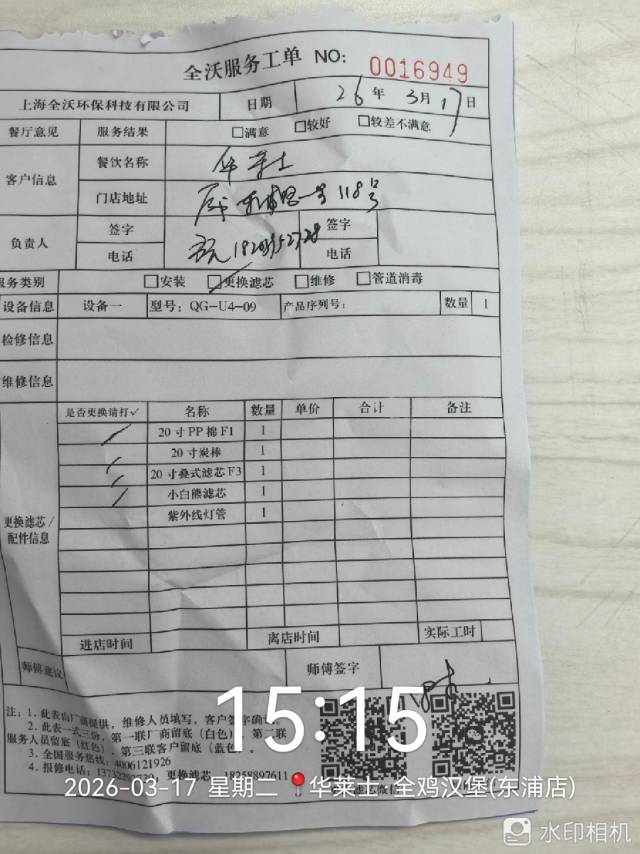 全沃服务工单 NO: 0016949
上海全沃环保科技有限公司 日期 26年 3月 17日
餐厅意见 服务结果 □满意 □较好 □较差不满意
客户信息 餐饮名称 华莱士
门店地址 118号
负责人 签字 签字
电话 电话
服务类别 □安装 □更换滤芯 □维修 □管道消毒
设备信息 设备一 型号: QG-U4-09 产品序列号: 数量 1
检修信息
维修信息
更换滤芯/配件信息
是否更换请打✓ 名称 数量 单价 合计 备注
20寸PP棉F1 1
20寸炭棒 1
20寸叠式滤芯F3 1
小白熊滤芯 1
紫外线灯管 1
进店时间 离店时间 实际工时
师傅建议 师傅签字
注: 1. 此表由厂商提供, 维修人员填写, 客户签字确
2. 此表一式三份, 第一联厂商留底 (白色), 第二联
服务人员留底 (红色), 第三联客户留底 (蓝色)。
3. 全国服务热线: 4006121926
4. 报修电话: 更换滤芯 18258897611
15:15
2026-03-17 星期二 华莱士·全鸡汉堡(东浦店)
水印相机